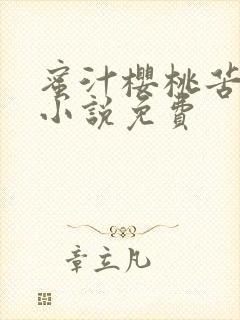 蜜汁櫻桃苦
小說免費
章立凡